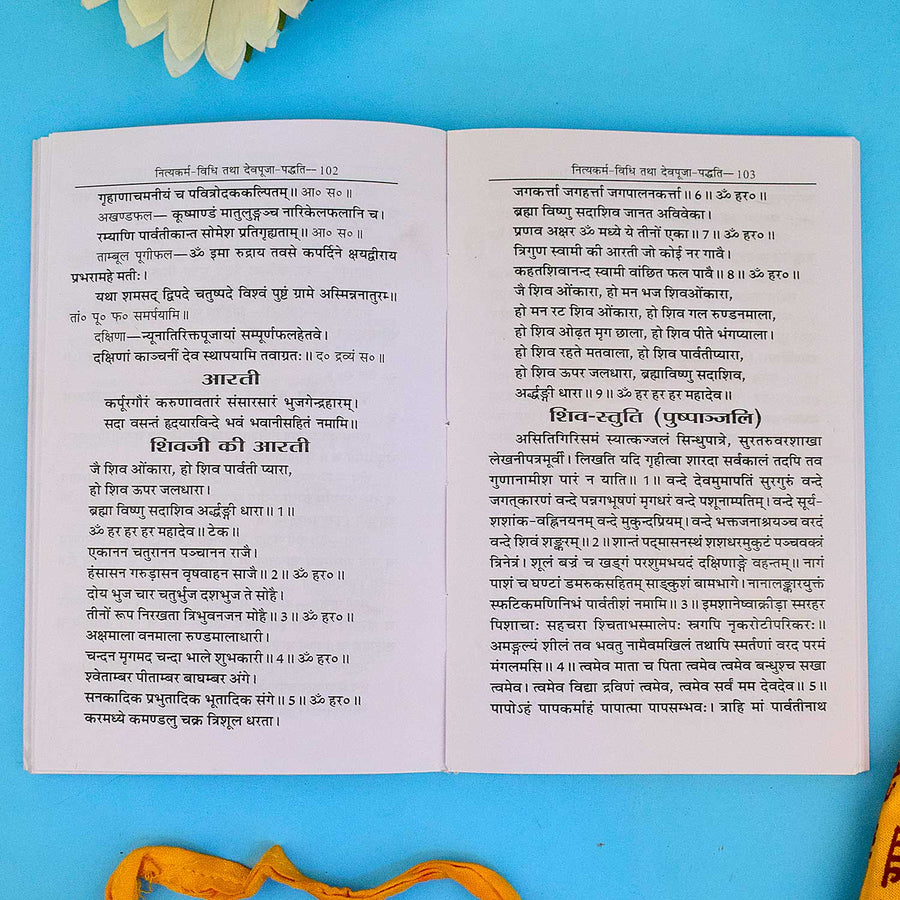 नित्यकर्म-विधि तथा देवपूजा-पद्धति— 102
गृहाणाचमनीयं च पवित्रोदककल्पितम्॥ आ० स०॥
अखण्डफल— कूष्माण्डं मातुलुङ्गञ्च नारिकेलफलानि च।
रम्याणि पार्वतीकान्त सोमेश प्रतिगृह्यताम्॥ आ० स०॥
ताम्बूल पूगीफल—ॐ इमा रुद्राय तवसे कपर्दिने क्षयद्वीराय
प्रभरामहे मतीः।
यथा शमसद् द्विपदे चतुष्पदे विश्वं पुष्टं ग्रामे अस्मिन्ननातुरम्॥
तां० पू० फ० समर्पयामि॥
दक्षिणा—न्यूनातिरिक्तपूजायां सम्पूर्णफलहेतवे।
दक्षिणां काञ्चनीं देव स्थापयामि तवाग्रतः॥ द० द्रव्यं स०॥
आरती
कर्पूरगौरं करुणावतारं संसारसारं भुजगेन्द्रहारम्।
सदा वसन्तं हृदयारविन्दे भवं भवानीसहितं नमामि॥
शिवजी की आरती
जै शिव ओंकारा, हो शिव पार्वती प्यारा,
हो शिव ऊपर जलधारा।
ब्रह्मा विष्णु सदाशिव अर्द्धङ्गी धारा॥ 1॥
ॐ हर हर हर महादेव॥ टेक॥
एकानन चतुरानन पञ्चानन राजै।
हंसासन गरुड़ासन वृषवाहन साजै॥ 2॥ ॐ हर०॥
दोय भुज चार चतुर्भुज दशभुज ते सोहै।
तीनों रूप निरखता त्रिभुवनजन मोहै॥ 3॥ ॐ हर०॥
अक्षमाला वनमाला रुण्डमालाधारी।
चन्दन मृगमद चन्दा भाले शुभकारी॥ 4॥ ॐ हर०॥
श्वेताम्बर पीताम्बर बाघम्बर अंगे।
सनकादिक प्रभुतादिक भूतादिक संगे॥ 5॥ ॐ हर०॥
करमध्ये कमण्डलु चक्र त्रिशूल धरता।
नित्यकर्म-विधि तथा देवपूजा-पद्धति— 103
जगकर्त्ता जगहर्त्ता जगपालनकर्त्ता॥ 6॥ ॐ हर०॥
ब्रह्मा विष्णु सदाशिव जानत अविवेका।
प्रणव अक्षर ॐ मध्ये ये तीनों एका॥ 7॥ ॐ हर०॥
त्रिगुण स्वामी की आरती जो कोई नर गावै।
कहतशिवानन्द स्वामी वांछित फल पावै॥ 8॥ ॐ हर०॥
जै शिव ओंकारा, हो मन भज शिवओंकारा,
हो मन रट शिव ओंकारा, हो शिव गल रुण्डनमाला,
हो शिव ओढ़त मृग छाला, हो शिव पीते भंगप्याला।
हो शिव रहते मतवाला, हो शिव पार्वतीप्यारा,
हो शिव ऊपर जलधारा, ब्रह्माविष्णु सदाशिव,
अर्द्धङ्गी धारा॥ 9॥ ॐ हर हर हर महादेव॥
शिव-स्तुति (पुष्पाञ्जलि)
असितिगिरिसमं स्यात्कज्जलं सिन्धुपात्रे, सुरतरुवरशाखा
लेखनीपत्रमूर्वी। लिखति यदि गृहीत्वा शारदा सर्वकालं तदपि तव
गुणानामीश पारं न याति॥ 1॥ वन्दे देवमुमापतिं सुरगुरुं वन्दे
जगत्कारणं वन्दे पन्नगभूषणं मृगधरं वन्दे पशूनाम्पतिम्। वन्दे सूर्य-
शशांक-वह्निनयनम् वन्दे मुकुन्दप्रियम्। वन्दे भक्तजनाश्रयञ्च वरदं
वन्दे शिवं शङ्करम्॥ 2॥ शान्तं पद्मासनस्थं शशधरमुकुटं पञ्चवक्त्रं
त्रिनेत्रं। शूलं बज्रं च खड्गं परशुमभयदं दक्षिणाङ्गे वहन्तम्॥ नागं
पाशं च घण्टां डमरुकसहितम् साङ्कुशं बामभागे। नानालङ्कारयुक्तं
स्फटिकमणिनिभं पार्वतीशं नमामि॥ 3॥ इमशानेष्वाक्रीड़ा स्मरहर
पिशाचाः सहचरा श्चिताभस्मालेपः स्त्रगपि नृकरोटीपरिकरः॥
अमङ्गल्यं शीलं तव भवतु नामैवमखिलं तथापि स्मर्तणां वरद परमं
मंगलमसि॥ 4॥ त्वमेव माता च पिता त्वमेव त्वमेव बन्धुश्च सखा
त्वमेव। त्वमेव विद्या द्रविणं त्वमेव, त्वमेव सर्वं मम देवदेव॥ 5॥
पापोऽहं पापकर्माहं पापात्मा पापसम्भवः। त्राहि मां पार्वतीनाथ